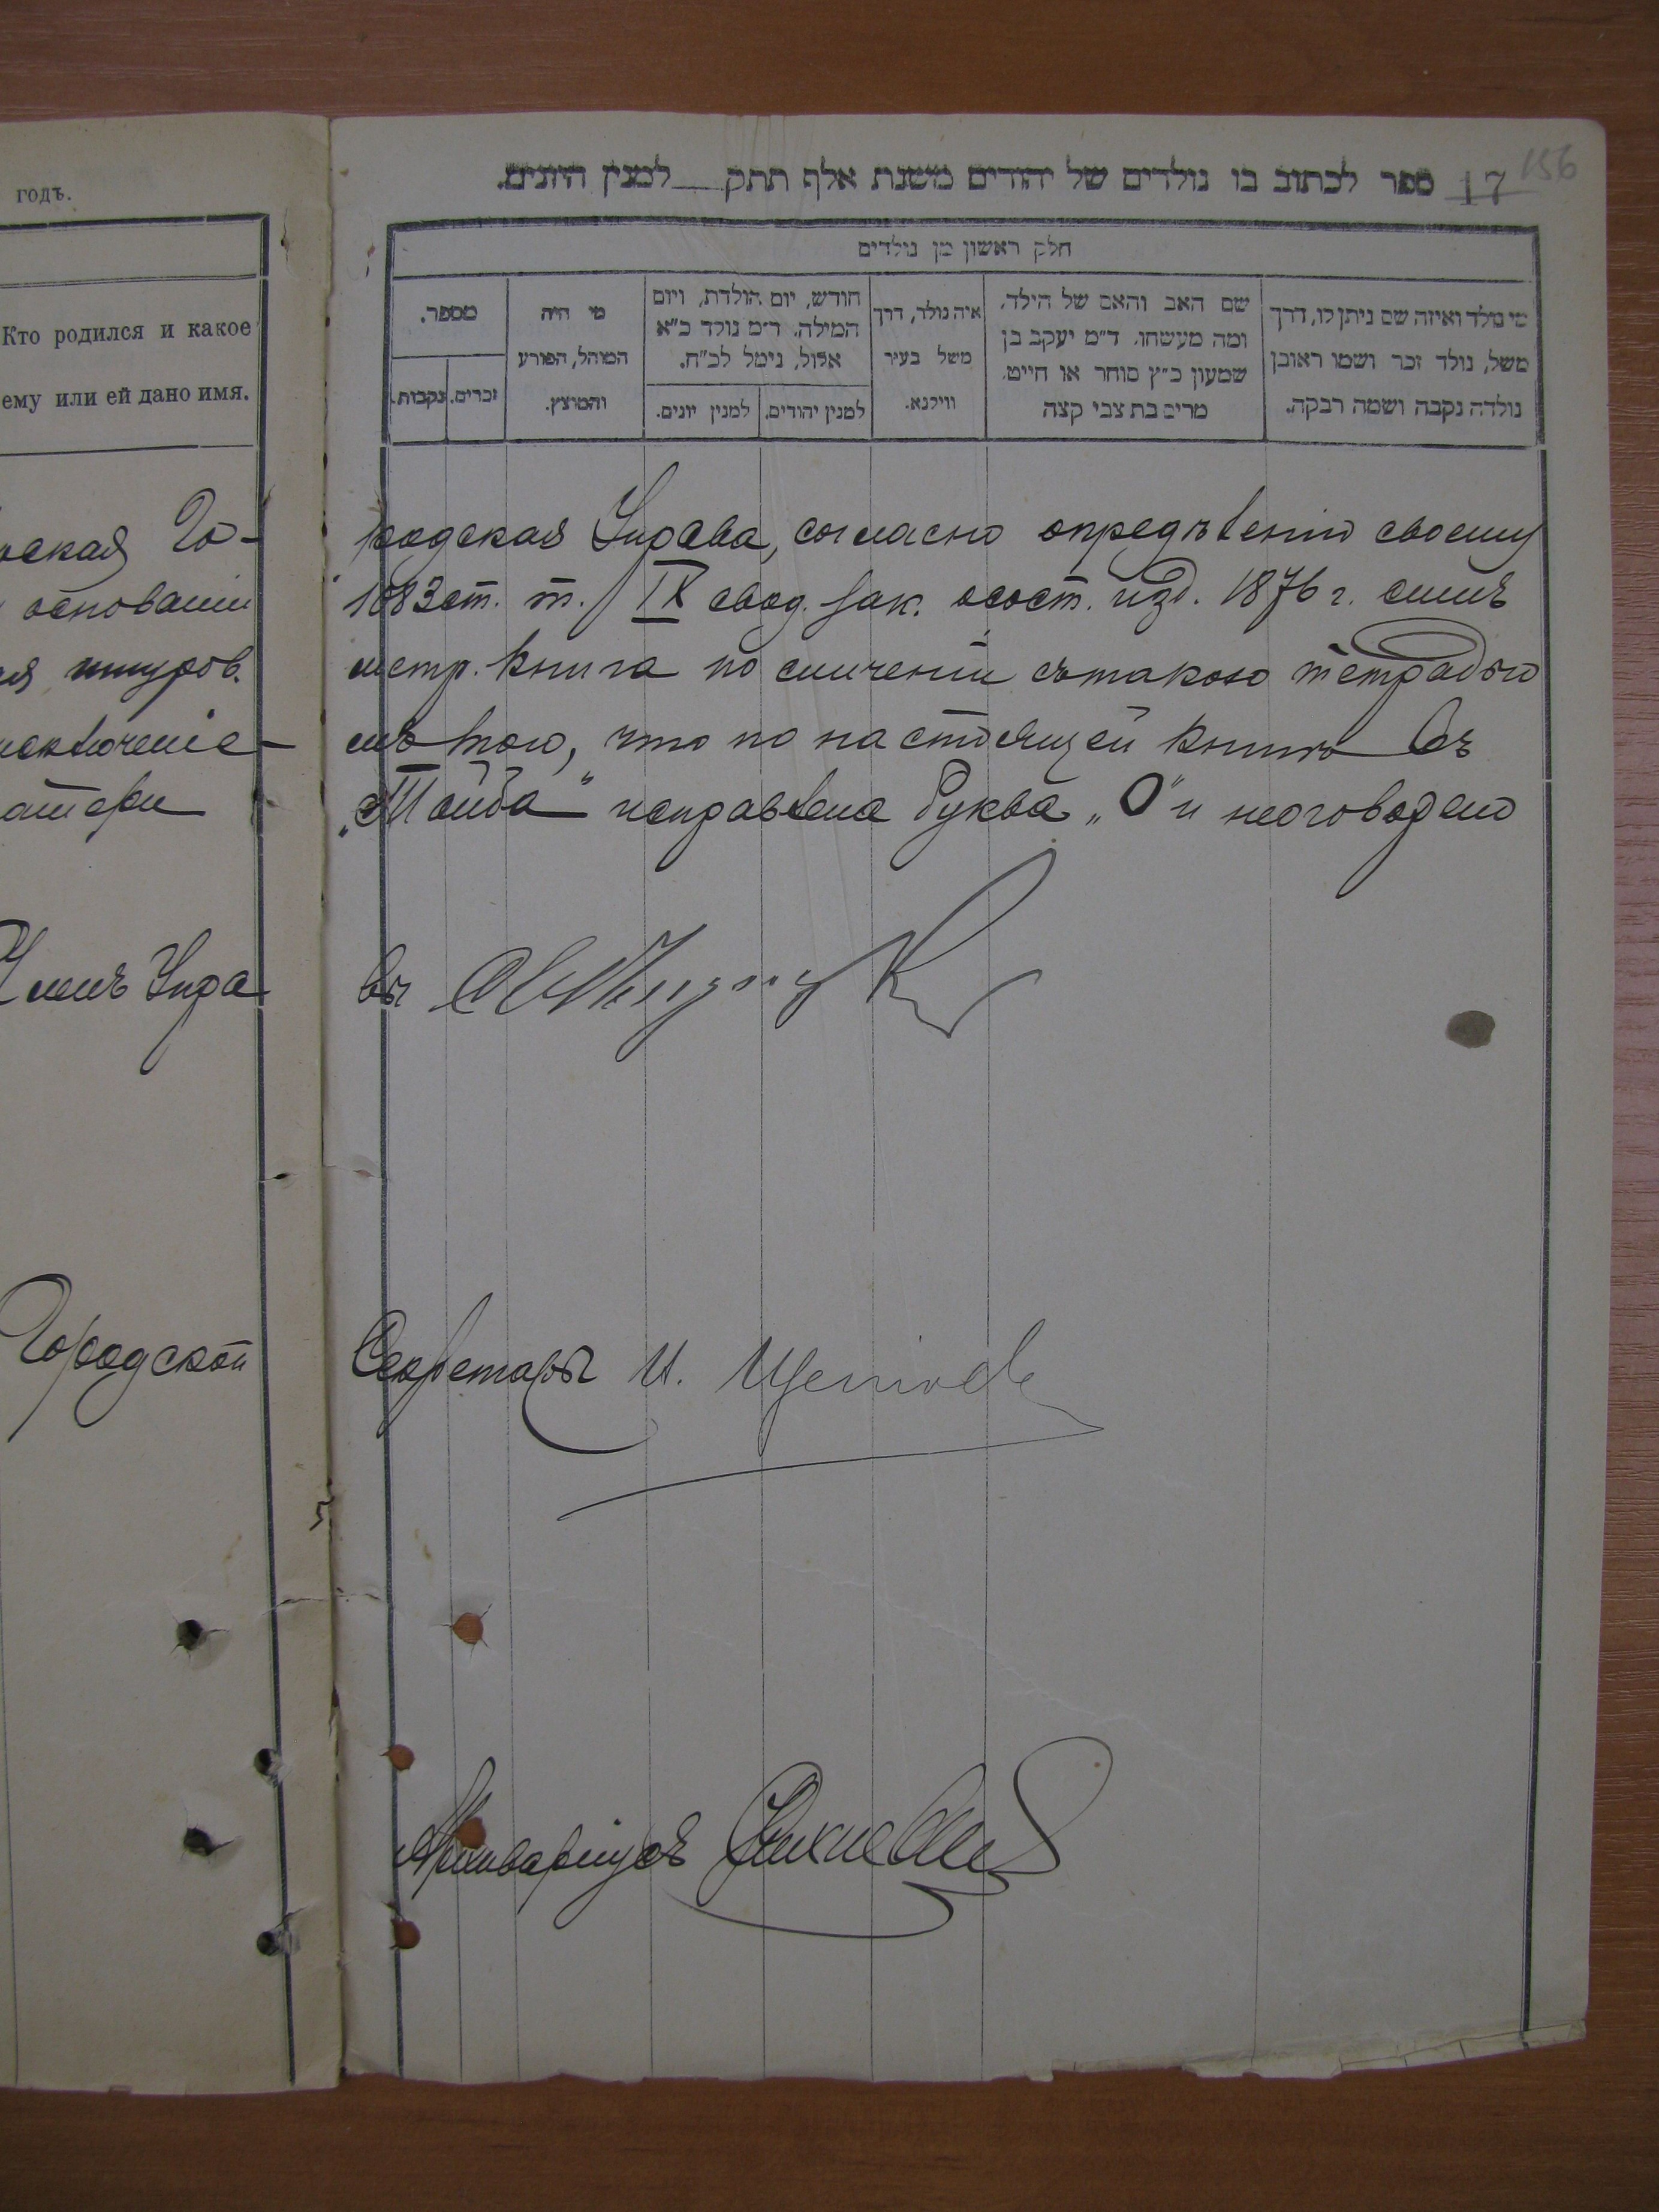 годъ.
Кто родился и какое
ему или ей дано имя.
Го-
основаніи
шнуров.
исключеніе-
атери
Членъ Упра
Городской
156
17 ספר לכתוב בו נולדים של יהודים משנת אלף תתק למנין היונים.
חלק ראשון מן נולדים
מי נולד ואיזה שם ניתן לו, דרך
משל, נולד זכר ושמו ראובן
נולדה נקבה ושמה רבקה.
שם האב והאם של הילד,
ומה מעשהו. ד״מ יעקב בן
שמעון כ״ץ סוחר או חייט.
מרים בת צבי קצה
איה נולד, דרך
משל בעיר
ווילנא.
חודש, יום הולדת, ויום
המילה. ד״מ נולד כ״א
אלול, נימל לכ״ח.
למנין יהודים.
למנין יונים.
מי היה
המוהל, הפורע
והמוצץ.
מספר.
זכרים.
נקבות.
родская Управа, согласно опредѣленію своему
1083 ст. т. IX свод. зак. о сост. изд. 1876 г. симъ
метр. книга по сличеніи съ такою тетрадью
мъ того, что по настоящей книгѣ въ
„Тойба" исправлена буква „О" и неоговорено
вы
Секретарь И.
Архиваріусъ